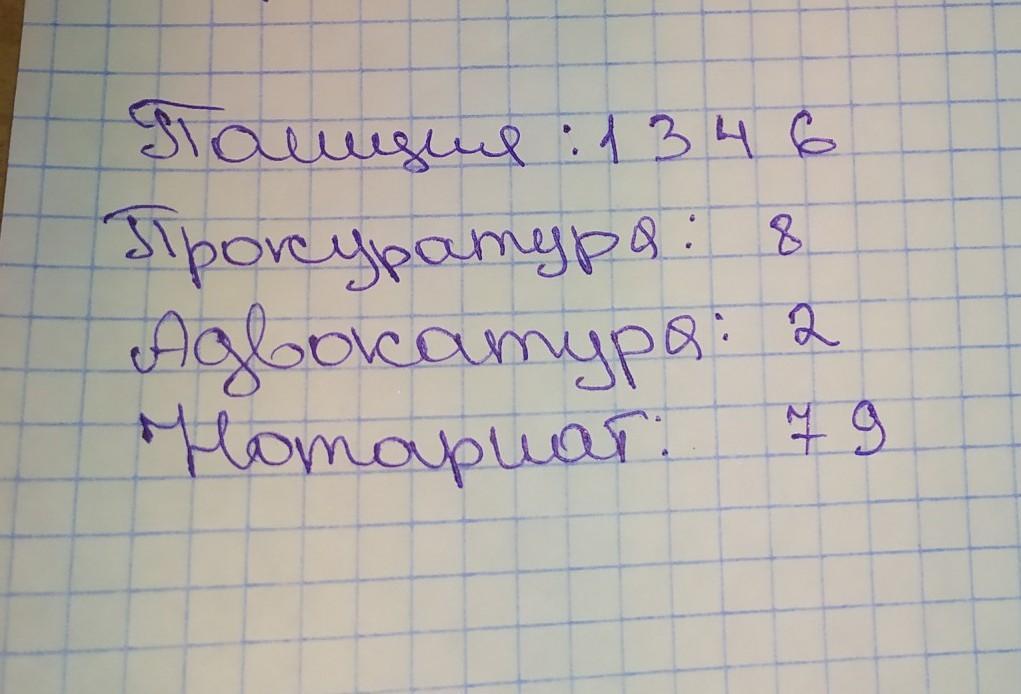 Полиция : 1 3 4 6
Прокуратура: 8
Адвокатура: 2
Нотариат: 7 9